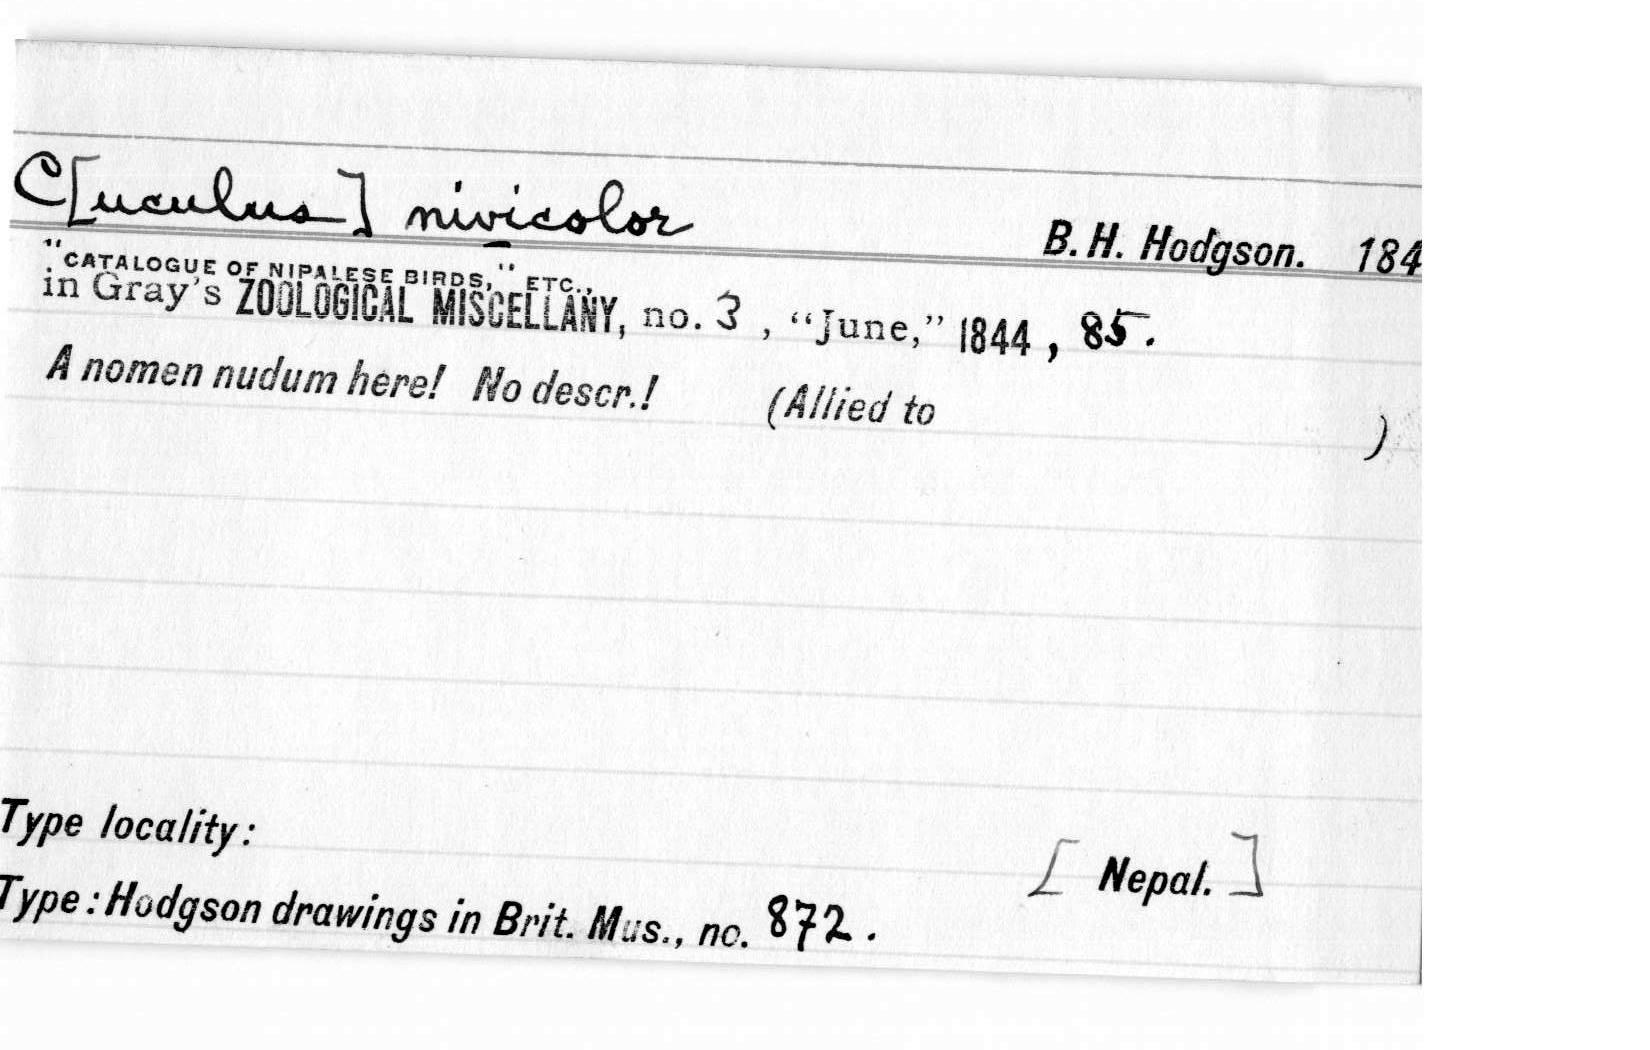 C[uculus] nivicolor B. H. Hodgson. 184
"CATALOGUE OF NIPALESE BIRDS," ETC.,
in Gray's ZOOLOGICAL MISCELLANY, no. 3, "June," 1844, 85.
A nomen nudum here! No descr.! (Allied to )
Type locality: [Nepal.]
Type: Hodgson drawings in Brit. Mus., no. 872.